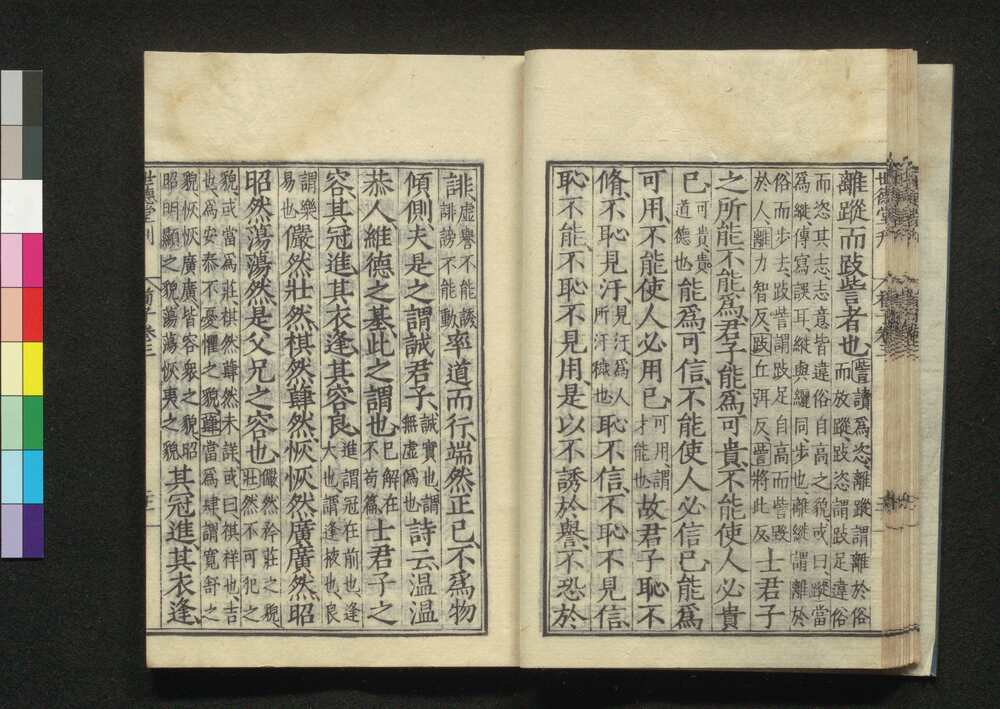 離蹤而跂訾者也訾讀爲恣離蹤謂離於俗而放蹤跂恣謂跂足違俗
而恣其志志意皆違俗自高之貌或曰蹤當爲縰傳寫誤耳縰與纚同步也離縰謂離於
俗而步去跂訾謂跂足自高而訾毀於人離力智反跂丘弭反訾將此反士君子
之所能不能爲君子能爲可貴不能使人必貴
己可貴貴道德也能爲可信不能使人必信己能爲
可用不能使人必用己可用謂才能也故君子恥不
脩不恥見汙見汙爲人所汙穢也恥不信不恥不見信
恥不能不恥不見用是以不誘於譽不恐於
誹虛譽不能誘誹謗不能動率道而行端然正己不爲物
傾側夫是之謂誠君子誠實也謂無虛爲也詩云溫溫
恭人維德之基此之謂也已解在不苟篇士君子之
容其冠進其衣逢其容良進謂冠在前也逢大也謂逢掖也良
謂樂易也儼然壯然祺然蕼然恢恢然廣廣然昭
昭然蕩蕩然是父兄之容也儼然矜莊之貌壯然不可犯之
貌或當爲莊祺然蕼然未詳或曰祺祥也吉也爲安泰不憂懼之貌蕼當爲肆謂寬舒之
貌恢恢廣廣皆容衆之貌昭昭明顯之貌蕩蕩恢夷之貌其冠進其衣逢
世德堂刊